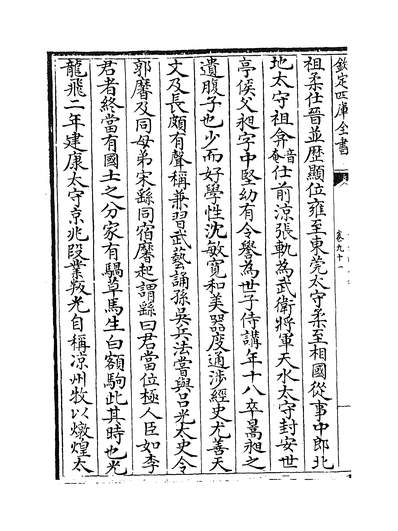 欽定四庫全書
卷九十一
祖柔仕晉並歷顯位雍至東莞太守柔至相國從事中郎北
地太守祖弇音奄仕前凉張軌為武衛將軍天水太守封安世
亭侯父昶字中堅幼有令譽為世子侍講年十八卒暠昶之
遺腹子也少而好學性沈敏寛和美器度通涉經史尤善天
文及長頗有聲稱兼習武藝誦孫吳兵法嘗與吕光太史令
郭黁及同母弟宋繇同宿黁起謂繇曰君當位極人臣如李
君者終當有國土之分家有騧草馬生白額駒此其時也光
龍飛二年建康太守京兆段業叛光自稱凉州牧以燉煌太